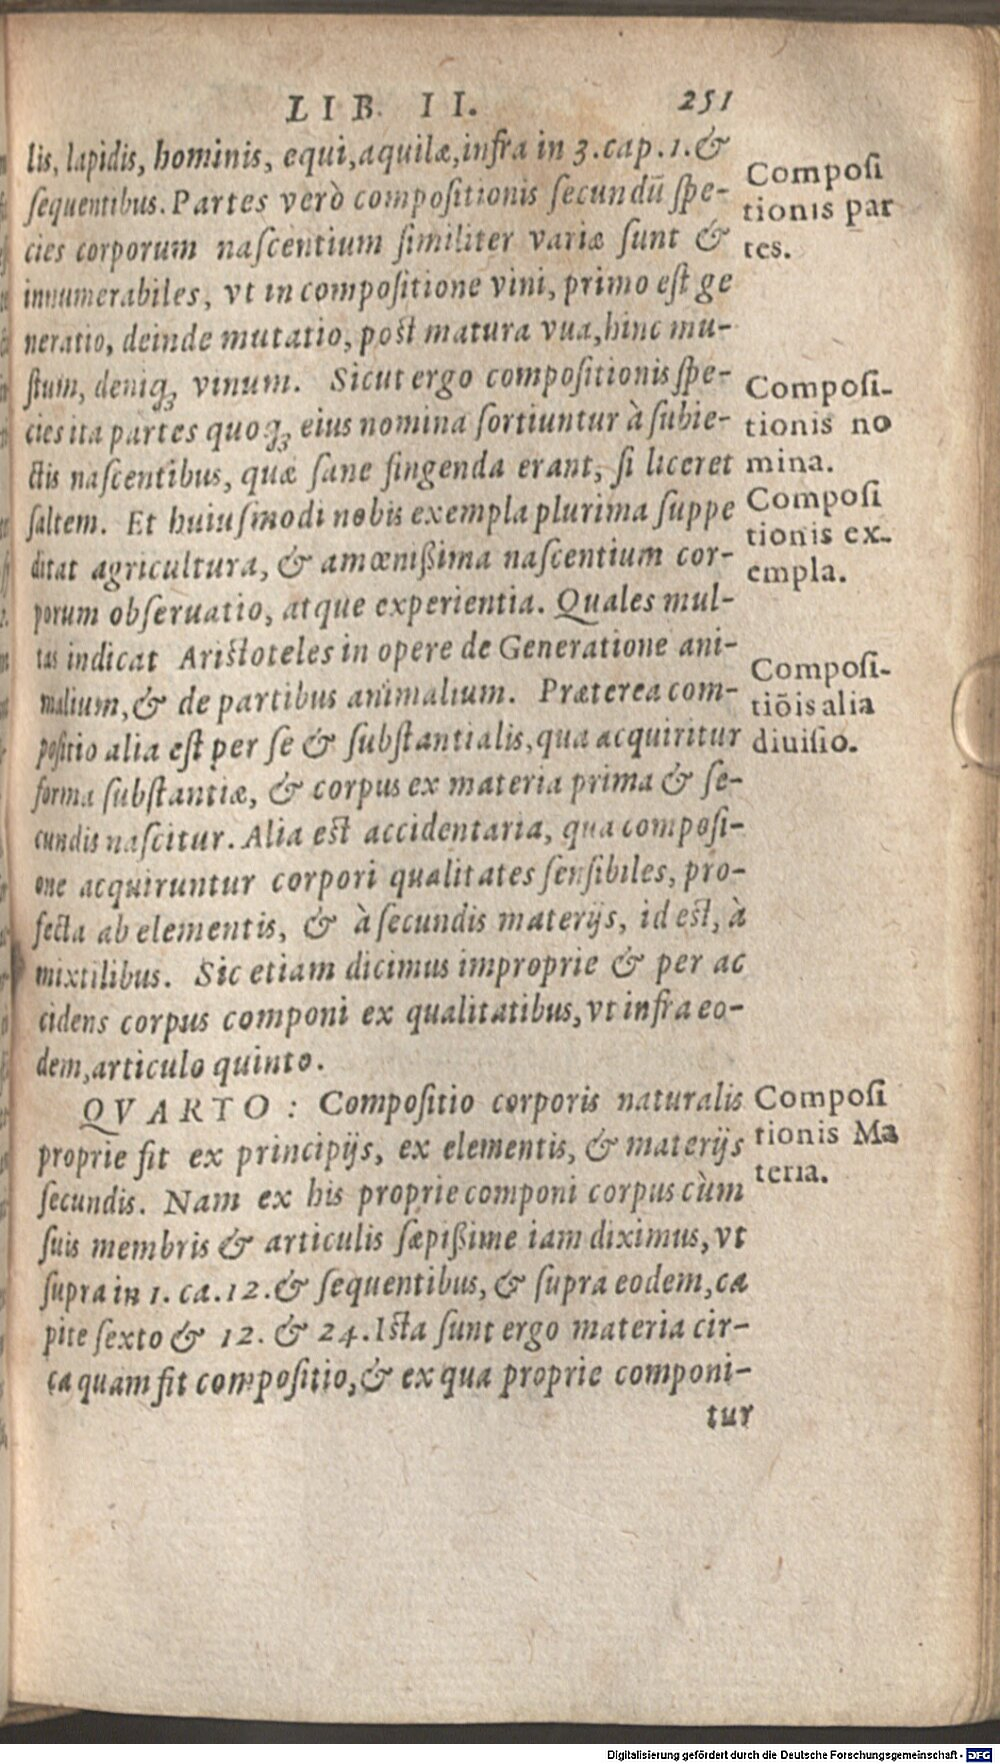 LIB. II. 251
lis, lapidis, hominis, equi, aquilæ, infra in 3. cap. 1. &
sequentibus. Partes verò compositionis secundū spe-
cies corporum nascentium similiter variæ sunt &
innumerabiles, vt in compositione vini, primo est ge
neratio, deinde mutatio, post matura vua, hinc mu-
stum, deniqꝫ vinum. Sicut ergo compositionis spe-
cies ita partes quoqꝫ eius nomina sortiuntur à subie-
ctis nascentibus, quæ sane fingenda erant, si liceret
saltem. Et huiusmodi nobis exempla plurima suppe
ditat agricultura, & amœnißima nascentium cor-
porum obseruatio, atque experientia. Quales mul-
tas indicat Aristoteles in opere de Generatione ani-
malium, & de partibus animalium. Præterea com-
positio alia est per se & substantialis, qua acquiritur
forma substantiæ, & corpus ex materia prima & se-
cundis nascitur. Alia est accidentaria, qua composi-
one acquiruntur corpori qualitates sensibiles, pro-
fecta ab elementis, & à secundis materijs, id est, à
mixtilibus. Sic etiam dicimus improprie & per ac
cidens corpus componi ex qualitatibus, vt infra eo-
dem, articulo quinto.
QVARTO: Compositio corporis naturalis
proprie fit ex principijs, ex elementis, & materijs
secundis. Nam ex his proprie componi corpus cùm
suis membris & articulis sæpißime iam diximus, vt
supra in 1. ca. 12. & sequentibus, & supra eodem, ca
pite sexto & 12. & 24. Ista sunt ergo materia cir-
ca quam fit compositio, & ex qua proprie componi-
tur
Composi
tionis par
tes.
Composi-
tionis no
mina.
Composi
tionis ex-
empla.
Composi-
tiōis alia
diuisio.
Composi
tionis Ma
teria.
Digitalisierung gefördert durch die Deutsche Forschungsgemeinschaft - DFG